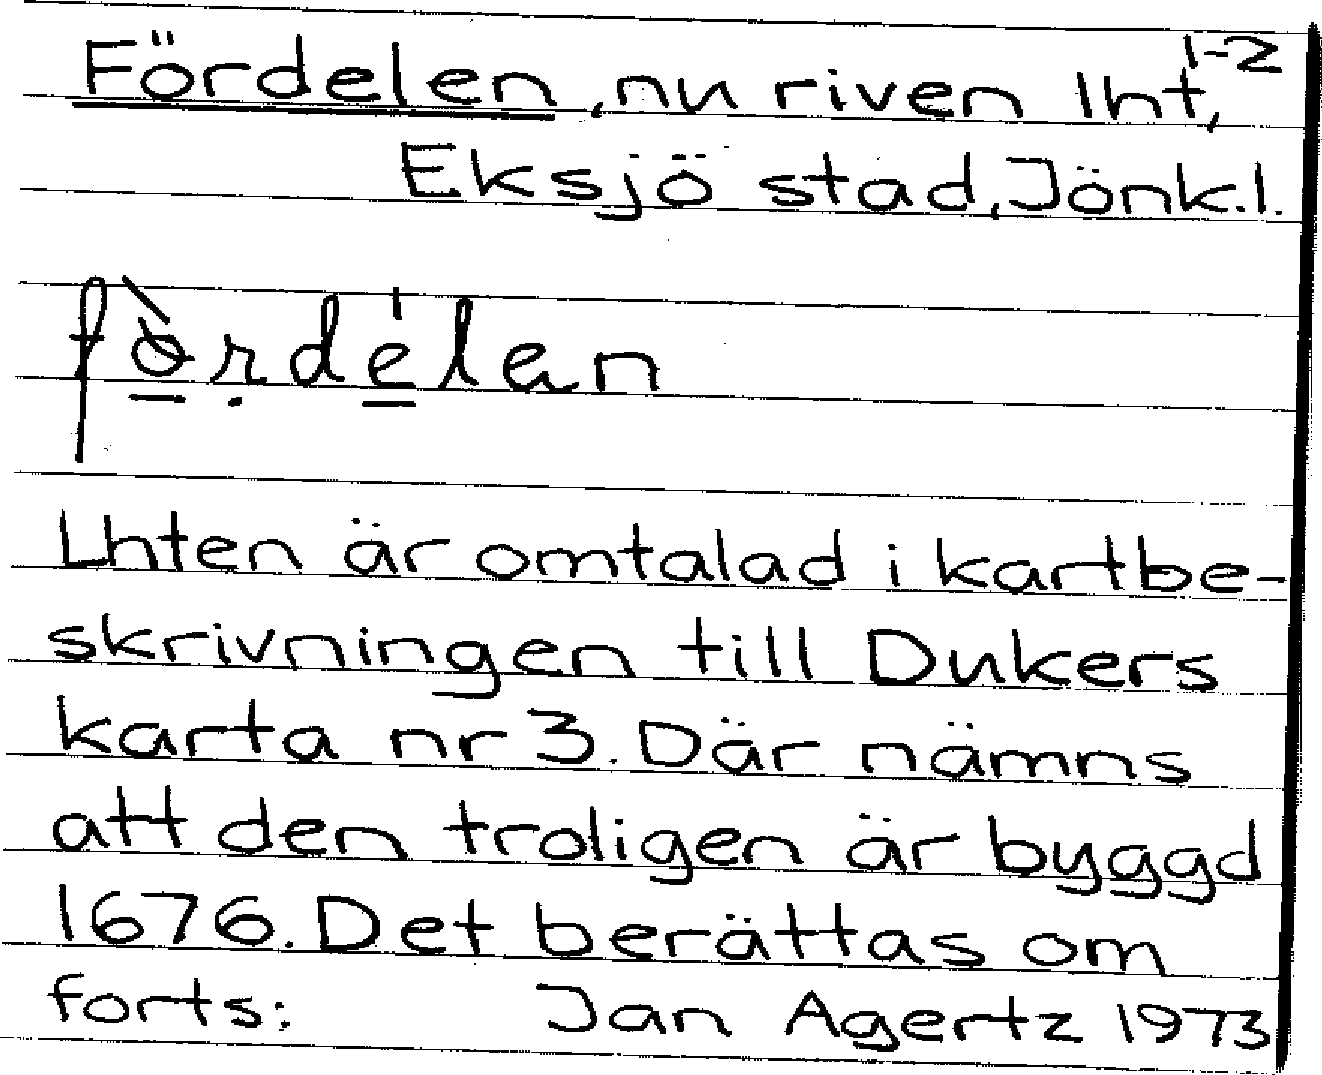 1-2
Fördelen, nu riven lht,
Eksjö stad, Jönk.l.
fö̀rdélen
Lhten är omtalad i kartbe-
skrivningen till Dukers
karta nr 3. Där nämns
att den troligen är byggd
1676. Det berättas om
forts: Jan Agertz 1973